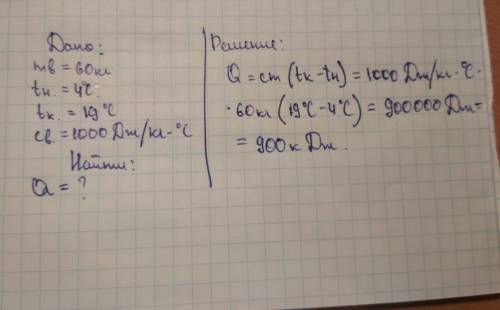 Дано:
mв = 60кг
tн. = 4℃
tк. = 19°C
cв. = 1000 Дж/кг·°C
Найти:
Q = ?
Решение:
Q = cm (tк - tн) = 1000 Дж/кг·°C·
· 60кг (19°C - 4°C) = 900000 Дж =
= 900 кДж.